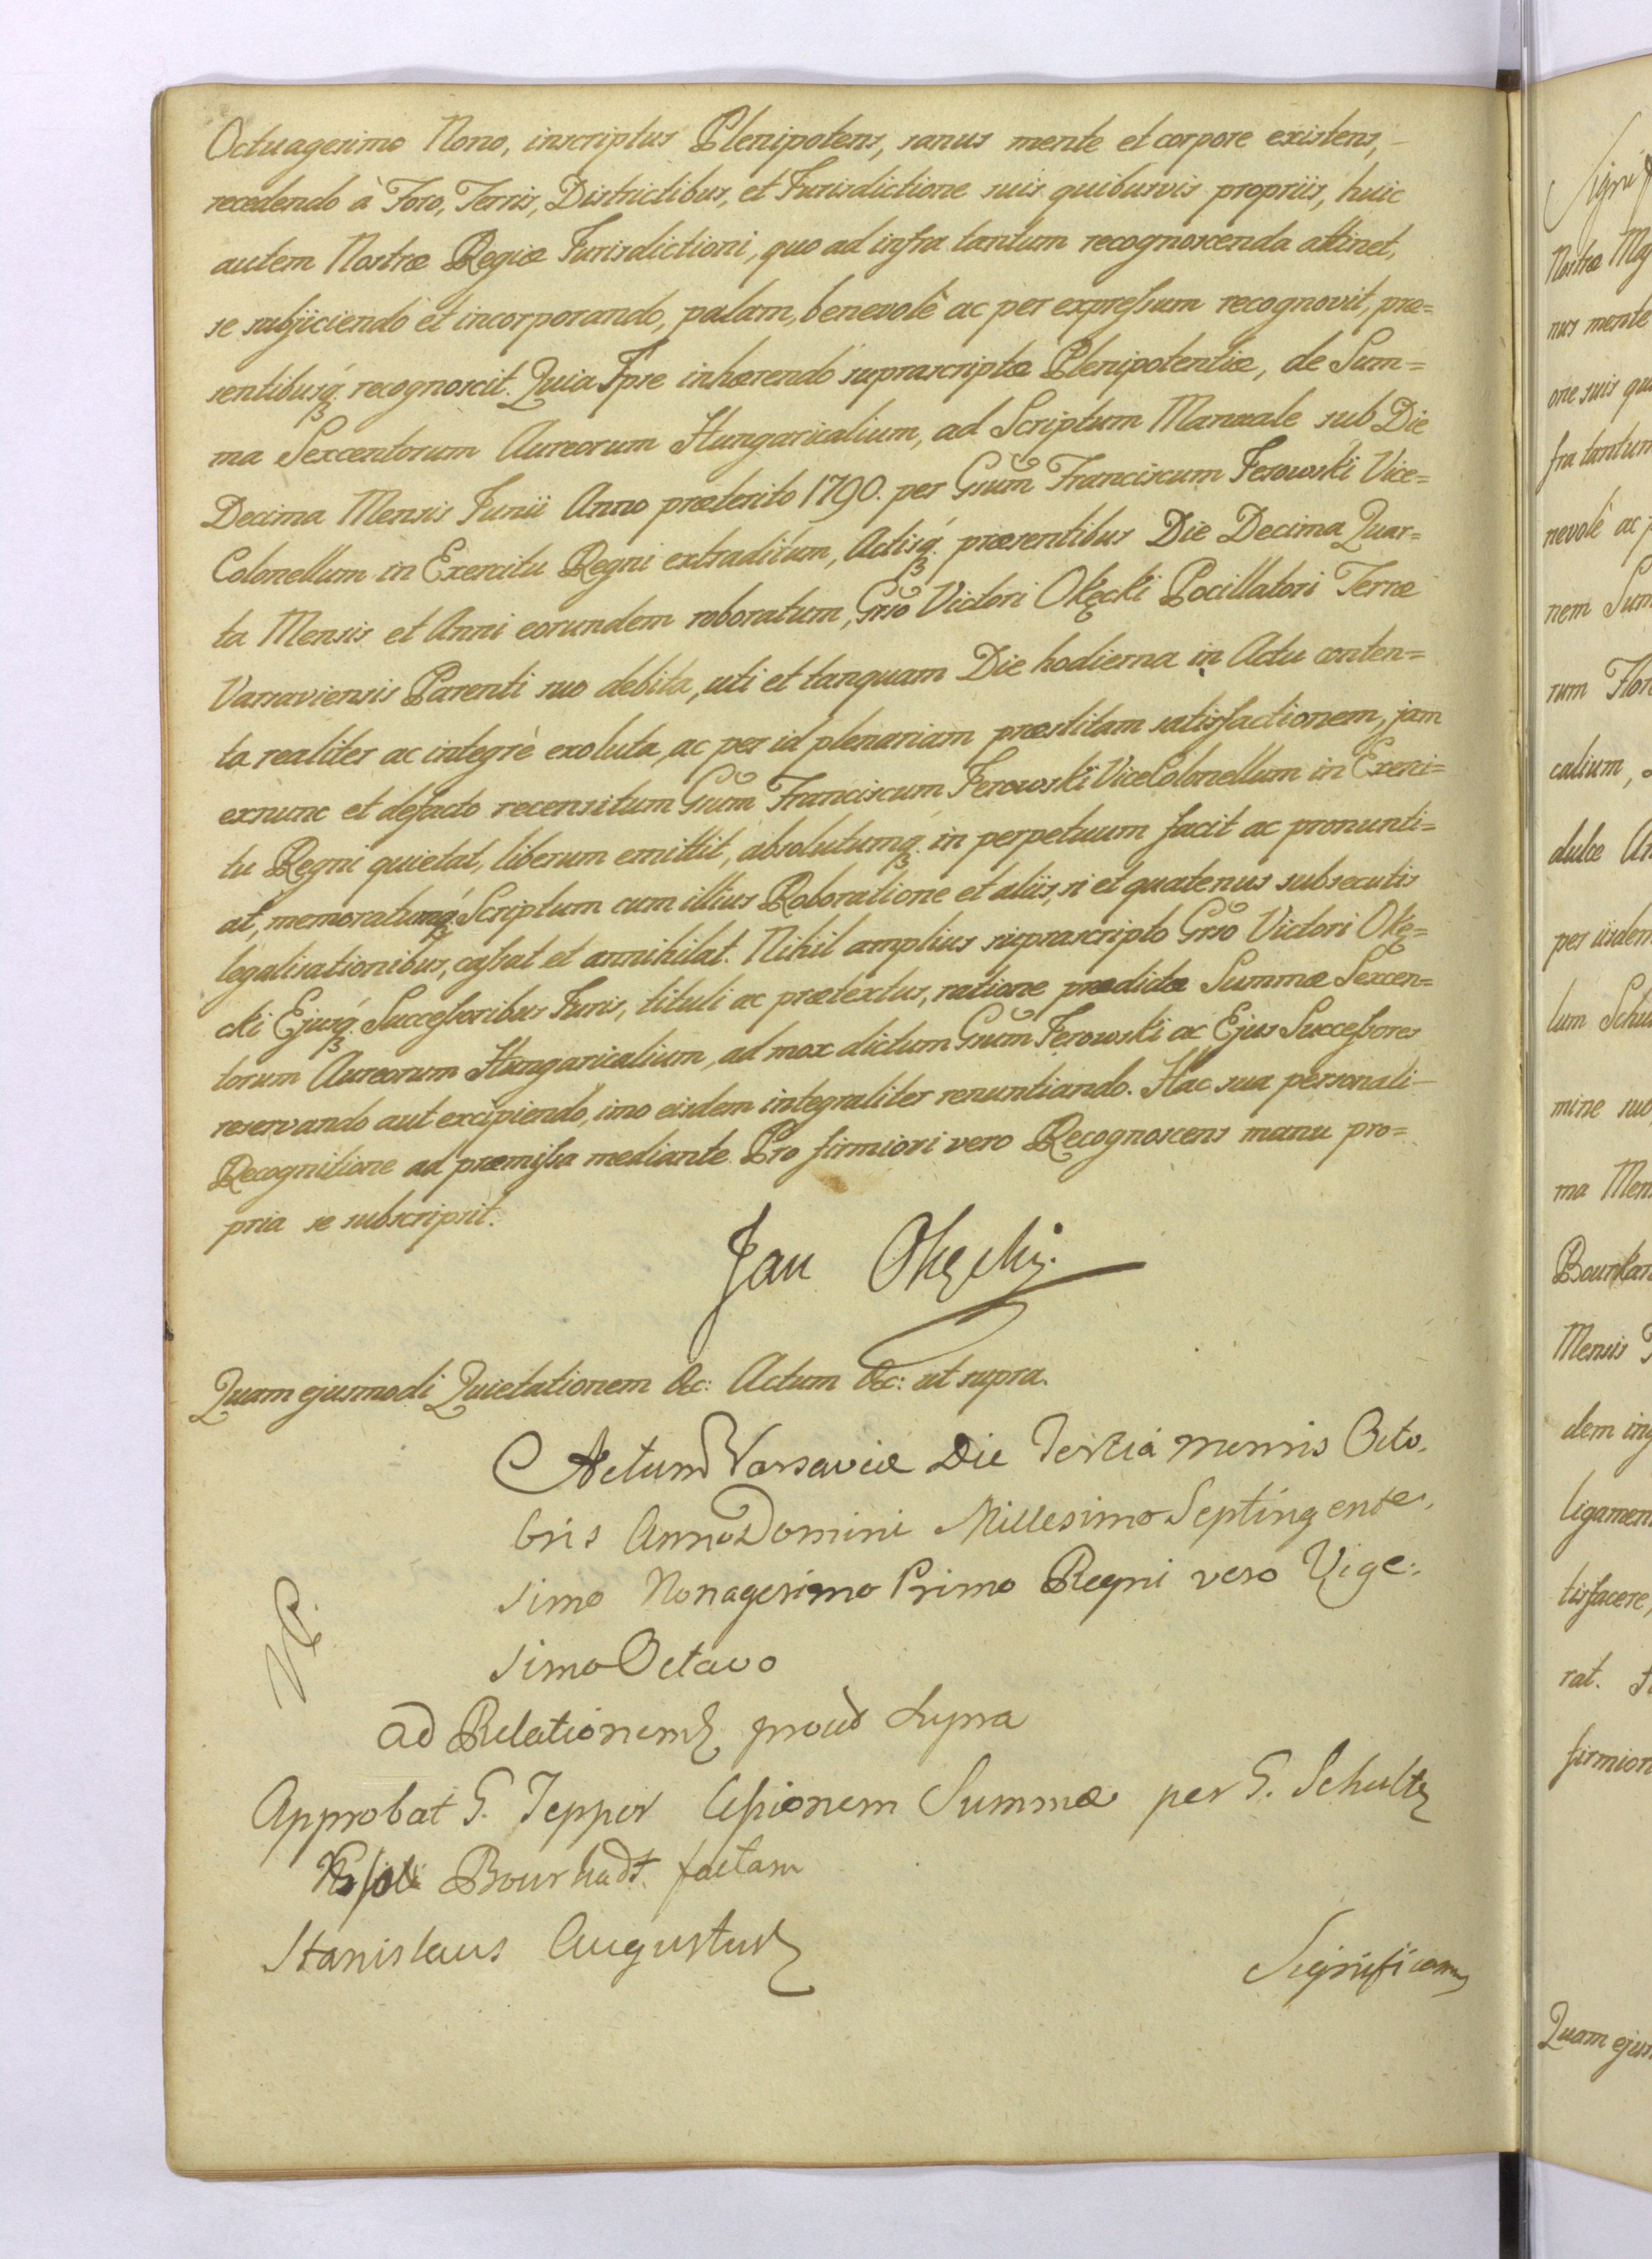 Octuagesimo Nono, inscriptus Plenipotens, sanus mente et corpore existens,
recedendo à Foro, Terris, Districtibus, et Jurisdictione suis quibusvis propriis, huic
autem Nostræ Regiæ Jurisdictioni, quo ad infra tantum recognoscenda attinet,
se subjiciendo et incorporando, palam, benevolè ac per expressum recognovit, præ=
sentibusq́ recognoscit. Quia Ipse inhærendo suprascriptæ Plenipotentiæ, de Sum=
ma Sexcentorum Aureorum Hungaricalium, ad Scriptum Manuale sub Die
Decima Mensis Junii Anno præterito 1790. per Gsum Franciscum Jerowski Vice=
Colonellum in Exercitu Regni extraditum, Actisq́ præsentibus Die Decima Quar=
ta Mensis et Anni eorundem roboratum, Gso Victori Okęcki Pocillatori Terræ
Varsaviensis Parenti suo debita, uti et tanquam Die hodierna in Actu conten=
ta realiter ac integrè exoluta, ac per id plenariam præstitam satisfactionem, jam
exnunc et defacto recensitum Gsum Franciscum Jerowski ViceColonellum in Exerci=
tu Regni quietat, liberum emittit, absolutumq́ in perpetuum facit ac pronunti=
at, memoratumq́ Scriptum cum illius Roboratione et aliis, si et quatenus subsecutis
legalisationibus, cassat et annihilat. Nihil amplius suprascripto Gso Victori Okę=
cki Ejusq́ Successoribus Juris, tituli ac prætextus, ratione prædictæ Summæ Sexcen=
torum Aureorum Hungaricalium, ad mox dictum Gsum Jerowski ac Ejus Successores
reservando aut excipiendo, imo eisdem integraliter renuntiando. Hac sua personali
Recognitione ad præmissa mediante. Pro firmiori vero Recognoscens manu pro=
pria se subscripsit.
Jan Okęcki.
Quam ejusmodi Quietationem &c: Actum &c: ut supra.
Actum Varsaviæ Die Tertia Mensis Octo.
bris Anno Domini Millesimo Septingente.
simo Nonagesimo Primo Regni vero Vige:
simo Octavo
ad Relationem prout Supra
Approbat G. Tepper Cessionem Summæ per G. Schultz
Bourhadt factam
Stanislaus Augustus
Significamus